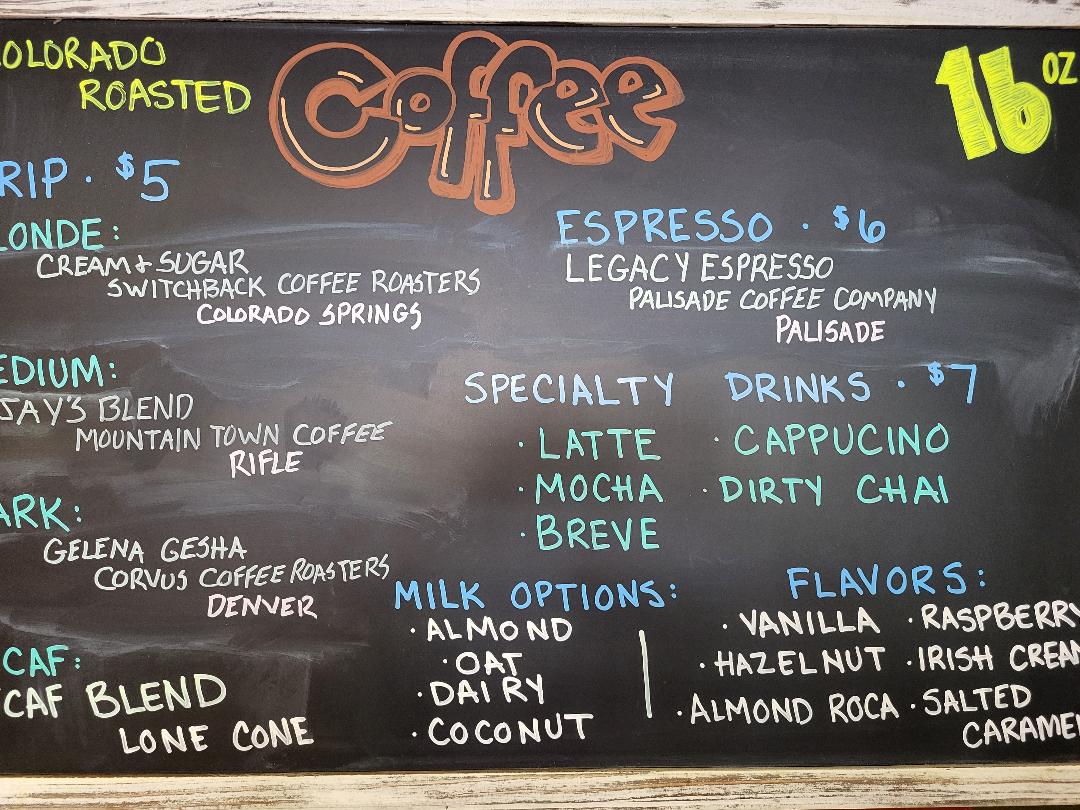 COLORADO
ROASTED
Coffee
16 OZ
RIP · $5
LONDE:
CREAM & SUGAR
SWITCHBACK COFFEE ROASTERS
COLORADO SPRINGS
EDIUM:
JAY'S BLEND
MOUNTAIN TOWN COFFEE
RIFLE
ARK:
GELENA GESHA
CORVUS COFFEE ROASTERS
DENVER
CAF:
CAF BLEND
LONE CONE
ESPRESSO · $6
LEGACY ESPRESSO
PALISADE COFFEE COMPANY
PALISADE
SPECIALTY DRINKS · $7
· LATTE · CAPPUCINO
· MOCHA · DIRTY CHAI
· BREVE
MILK OPTIONS:
· ALMOND
· OAT
· DAIRY
· COCONUT
FLAVORS:
· VANILLA · RASPBERRY
· HAZELNUT · IRISH CREAM
· ALMOND ROCA · SALTED
CARAMEL